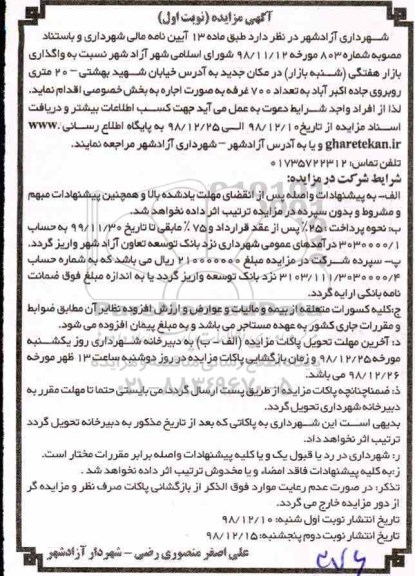 آگهی مزایده (نوبت اول)
شهرداری آزادشهر در نظر دارد طبق ماده ۱۳ آیین نامه مالی شهرداری و باستناد
مصوبه شماره ۸۰۳ مورخه ۹۸/۱۱/۱۲ شورای اسلامی شهر آزاد شهر نسبت به واگذاری
بازار هفتگی (شنبه بازار) در مکان جدید به آدرس خیابان شهید بهشتی - ۲۰ متری
روبروی جاده اکبر آباد به تعداد ۷۰۰ غرفه به صورت اجاره به بخش خصوصی اقدام نماید.
لذا از افراد واجد شرایط دعوت به عمل می آید جهت کسب اطلاعات بیشتر و دریافت
اسناد مزایده از تاریخ ۹۸/۱۲/۱۰ الی ۹۸/۱۲/۲۵ به پایگاه اطلاع رسانی www.
gharetekan.ir و یا به آدرس آزادشهر - شهرداری آزادشهر مراجعه نمایند.
تلفن تماس: ۰۱۷۳۵۷۲۲۳۱۲
شرایط شرکت در مزایده:
الف- به پیشنهادات واصله پس از انقضای مهلت یادشده بالا و همچنین پیشنهادات مبهم
و مشروط و بدون سپرده در مزایده ترتیب اثر داده نخواهد شد.
ب: نحوه پرداخت: ۲۵٪ پس از عقد قرارداد و ۷۵٪ مابقی تا تاریخ ۹۹/۱۱/۳۰ به حساب
۳۰۳۰۰۰۰/۱ درآمدهای عمومی شهرداری نزد بانک توسعه تعاون آزاد شهر واریز گردد.
پ- سپرده شرکت در مزایده مبلغ ۲۱۰۰۰۰۰۰۰ ریال می باشد که به شماره حساب
۳۱۰۳/۱۱۱/۳۰۳۰۰۰۰/۴ نزد بانک توسعه واریز گردد یا به اندازه مبلغ فوق ضمانت
نامه بانکی ارایه گردد.
ج: کلیه کسورات متعلقه از بیمه و مالیات و عوارض و ارزش افزوده نظایر آن مطابق ضوابط
و مقررات جاری کشور به عهده مستاجر می باشد و به مبلغ پیمان افزوده می شود.
د: آخرین مهلت تحویل پاکات مزایده (الف - ب) به دبیرخانه شهرداری روز یکشنبه
مورخه ۹۸/۱۲/۲۵ و زمان بازگشایی پاکات مزایده در روز دوشنبه ساعت ۱۳ ظهر مورخه
۹۸/۱۲/۲۶ می باشد.
ذ: ضمناچنانچه پاکات مزایده از طریق پست ارسال گردد می بایستی حتما تا مهلت مقرر به
دبیرخانه شهرداری تحویل گردد.
بدیهی است این شهرداری به پاکاتی که بعد از تاریخ مذکور به دبیرخانه تحویل گردد
ترتیب اثر نخواهد داد.
ر: شهرداری در رد یا قبول یک و یا کلیه پیشنهادات واصله برابر مقررات مختار است.
ز: به کلیه پیشنهادات فاقد امضاء و یا مخدوش ترتیب اثر داده نخواهد شد.
تذکر: در صورت عدم رعایت موارد فوق الذکر از بازگشایی پاکات صرف نظر و مزایده گر
از دور مزایده خارج می گردد.
تاریخ انتشار نوبت اول شنبه: ۹۸/۱۲/۱۰
تاریخ انتشار نوبت دوم پنجشنبه: ۹۸/۱۲/۱۵
علی اصغر منصوری رضی - شهردار آزادشهر